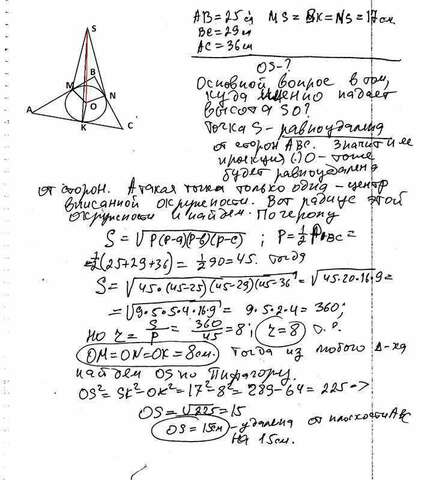 S
M
B
N
O
A
K
C
AB = 25 см MS = SK = NS = 17 см
BC = 29 м
AC = 36 м
OS - ?
Основной вопрос в том,
куда именно падает
высота SO?
Точка S - равноудалена
от сторон ABC. Значит и ее
проекция (·)O - тоже
будет равноудалена
от сторон. А такая точка только одна - центр
вписанной окружности. Вот радиус этой
окружности и найдем. По Герону
S = √P(P-a)(P-b)(P-c) ; P = 1/2 P ABC =
= 1/2 (25+29+36) = 1/2 90 = 45. Тогда
S = √45·(45-25)(45-29)(45-36 = √45·20·16·9 =
= √9·5·5·4·16·9 = 9·5·2·4 = 360;
Но r = S/P = 360/45 = 8; r = 8
OM = ON = OK = 8 см. Тогда из любого Δ-ка
найдем OS по Пифагору.
OS² = SK² - OK² = 17² - 8² = 289 - 64 = 225 =>
OS = √225 = 15
OS = 15 см - удалена от плоскости ABC
на 15 см.